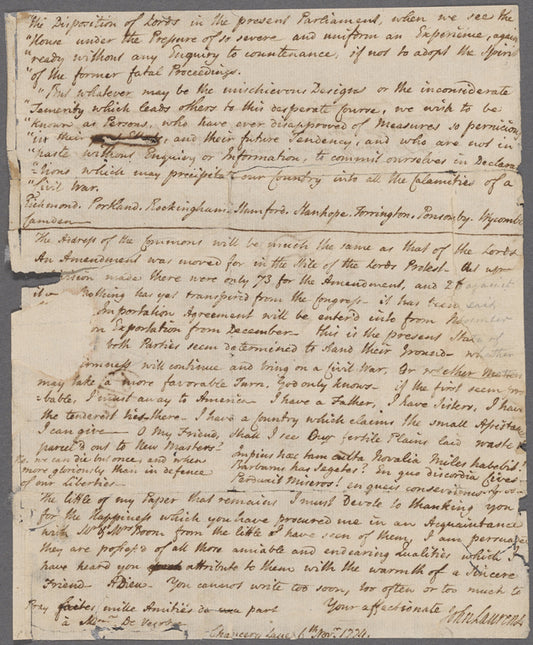 the Disposition of Lords in the present Parliament, when we see the
"House under the Pressure of so severe and uniform an Experience, again
"ready without any Enquiry to countenance, if not to adopt the Spirit
"of the former fatal Proceedings.
"But whatever may be the mischievous Designs or the inconsiderate
"Temerity which leads others to this desperate Course, we wish to be
"known as Persons, who have ever disapproved of Measures so pernicious
"in their and their future Tendency, and who are not in
"haste without Enquiry or Information, to commit ourselves in Declara
"tions which may precipitate our Country into all the Calamities of a
"Civil War.
Richmond. Portland. Rockingham, Stamford. Stanhope. Torrington. Ponsonby. Wycombe
Camden
The Address of the Commons will be much the same as that of the Lords
An Amendment was moved for in the Stile of the Lords Protest but upon
made there were only 73 for the Amendment, and against
it Nothing has yet transpired from the Congress it has been said
Importation Agreement will be enter'd into from November
on Exportation from December this is the present State of
both Parties seem determined to stand their Ground whether
will continue and bring on a Civil War, Or whether Matters
may take a more favorable Turn, God only knows if the first seem pro
bable, I must away to America I have a Father, I have Sisters, I have
the tenderest ties there I have a Country which claims the small Assistance
I can give O My Friend, shall I see Our fertile Plains laid waste &
parcel'd out to New Masters?
we can die but once, and when
more gloriously than in defence
of our Liberties
impius haec tam culta Novalia Miles habebit!
Barbarus has Segetes? En quo discordia Cives
Perduxit Miseros! en queis consevimus agros
The little of my Paper that remains I must Devote to thanking you
for the Happiness which you have procured me in an Acquaintance
with Mr. & Mrs. from the little I have seen of them, I am persuaded
they are posses'd of all those amiable and endearing Qualities which I
have heard you attribute to them with the warmth of a Sincere
Friend Adieu You cannot write too soon, too often or too much to
Your affectionate John Laurens
Pray faites mille Amitiés de ma part
à De
Chancery Lane 6th Novr. 1774.